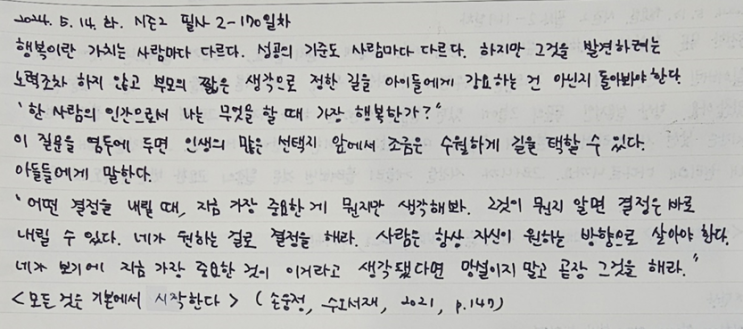 2024. 5. 14. 화. 시즌2 필사 2-170일차
행복이란 가치는 사람마다 다르다. 성공의 기준도 사람마다 다르다. 하지만 그것을 발견하려는
노력조차 하지 않고 부모의 짧은 생각으로 정한 길을 아이들에게 강요하는 건 아닌지 돌아봐야 한다.
"한 사람의 인간으로서 나는 무엇을 할 때 가장 행복한가?"
이 질문을 염두에 두면 인생의 많은 선택지 앞에서 조금은 수월하게 길을 택할 수 있다.
아들들에게 말한다.
"어떤 결정을 내릴 때, 지금 가장 중요한 게 뭔지만 생각해봐. 그것이 뭔지 알면 결정은 바로
내릴 수 있다. 네가 원하는 걸로 결정을 해라. 사람은 항상 자신이 원하는 방향으로 살아야 한다.
네가 보기에 지금 가장 중요한 것이 이거라고 생각됐다면 망설이지 말고 곧장 그것을 해라."
<모든 것은 기본에서 시작한다> (손웅정, 수오서재, 2021, p.147)